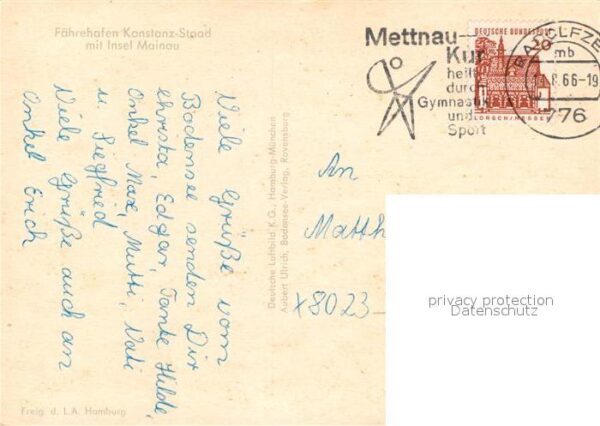 Fährehafen Konstanz-Staad
mit Insel Mainau
Viele Grüße vom
Bodensee senden Dir
Christa, Edgar, Tante Hilde,
Onkel Max, Mutti, Vati
u. Siegfried
Viele Grüße auch an
Onkel Erich
Freig. d. L.A. Hamburg
Deutsche Luftbild K.G., Hamburg-München
Aubert Ulrich, Bodensee-Verlag, Ravensburg
Mettnau-
Kur
heilt
durch
Gymnastik
und
Sport
DEUTSCHE BUNDESPOST
20
LORSCH/HESSEN
RADOLFZE
mb
8.66-19
776
An
Matth
x8023
privacy protection
Datenschutz